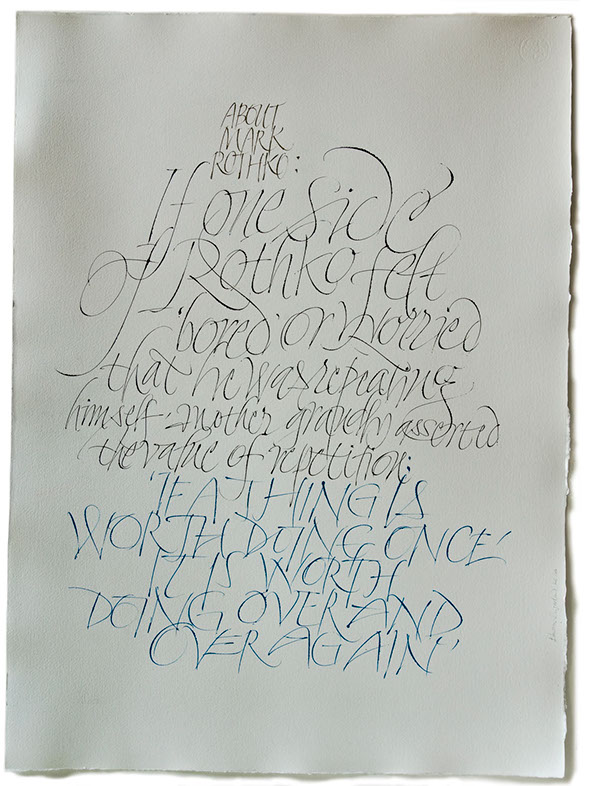 ABOUT
MARK
ROTHKO:
If one side
of Rothko felt
'bored' or worried
that he was repeating
himself. another grandly asserted
the value of repetition:
'IF A THING IS
WORTH DOING ONCE'
IT IS WORTH
DOING OVER AND
OVER AGAIN'